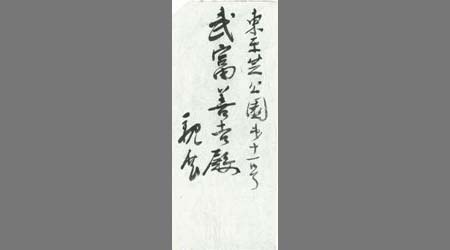 東京芝公園第十一号
武富善吉殿
親展